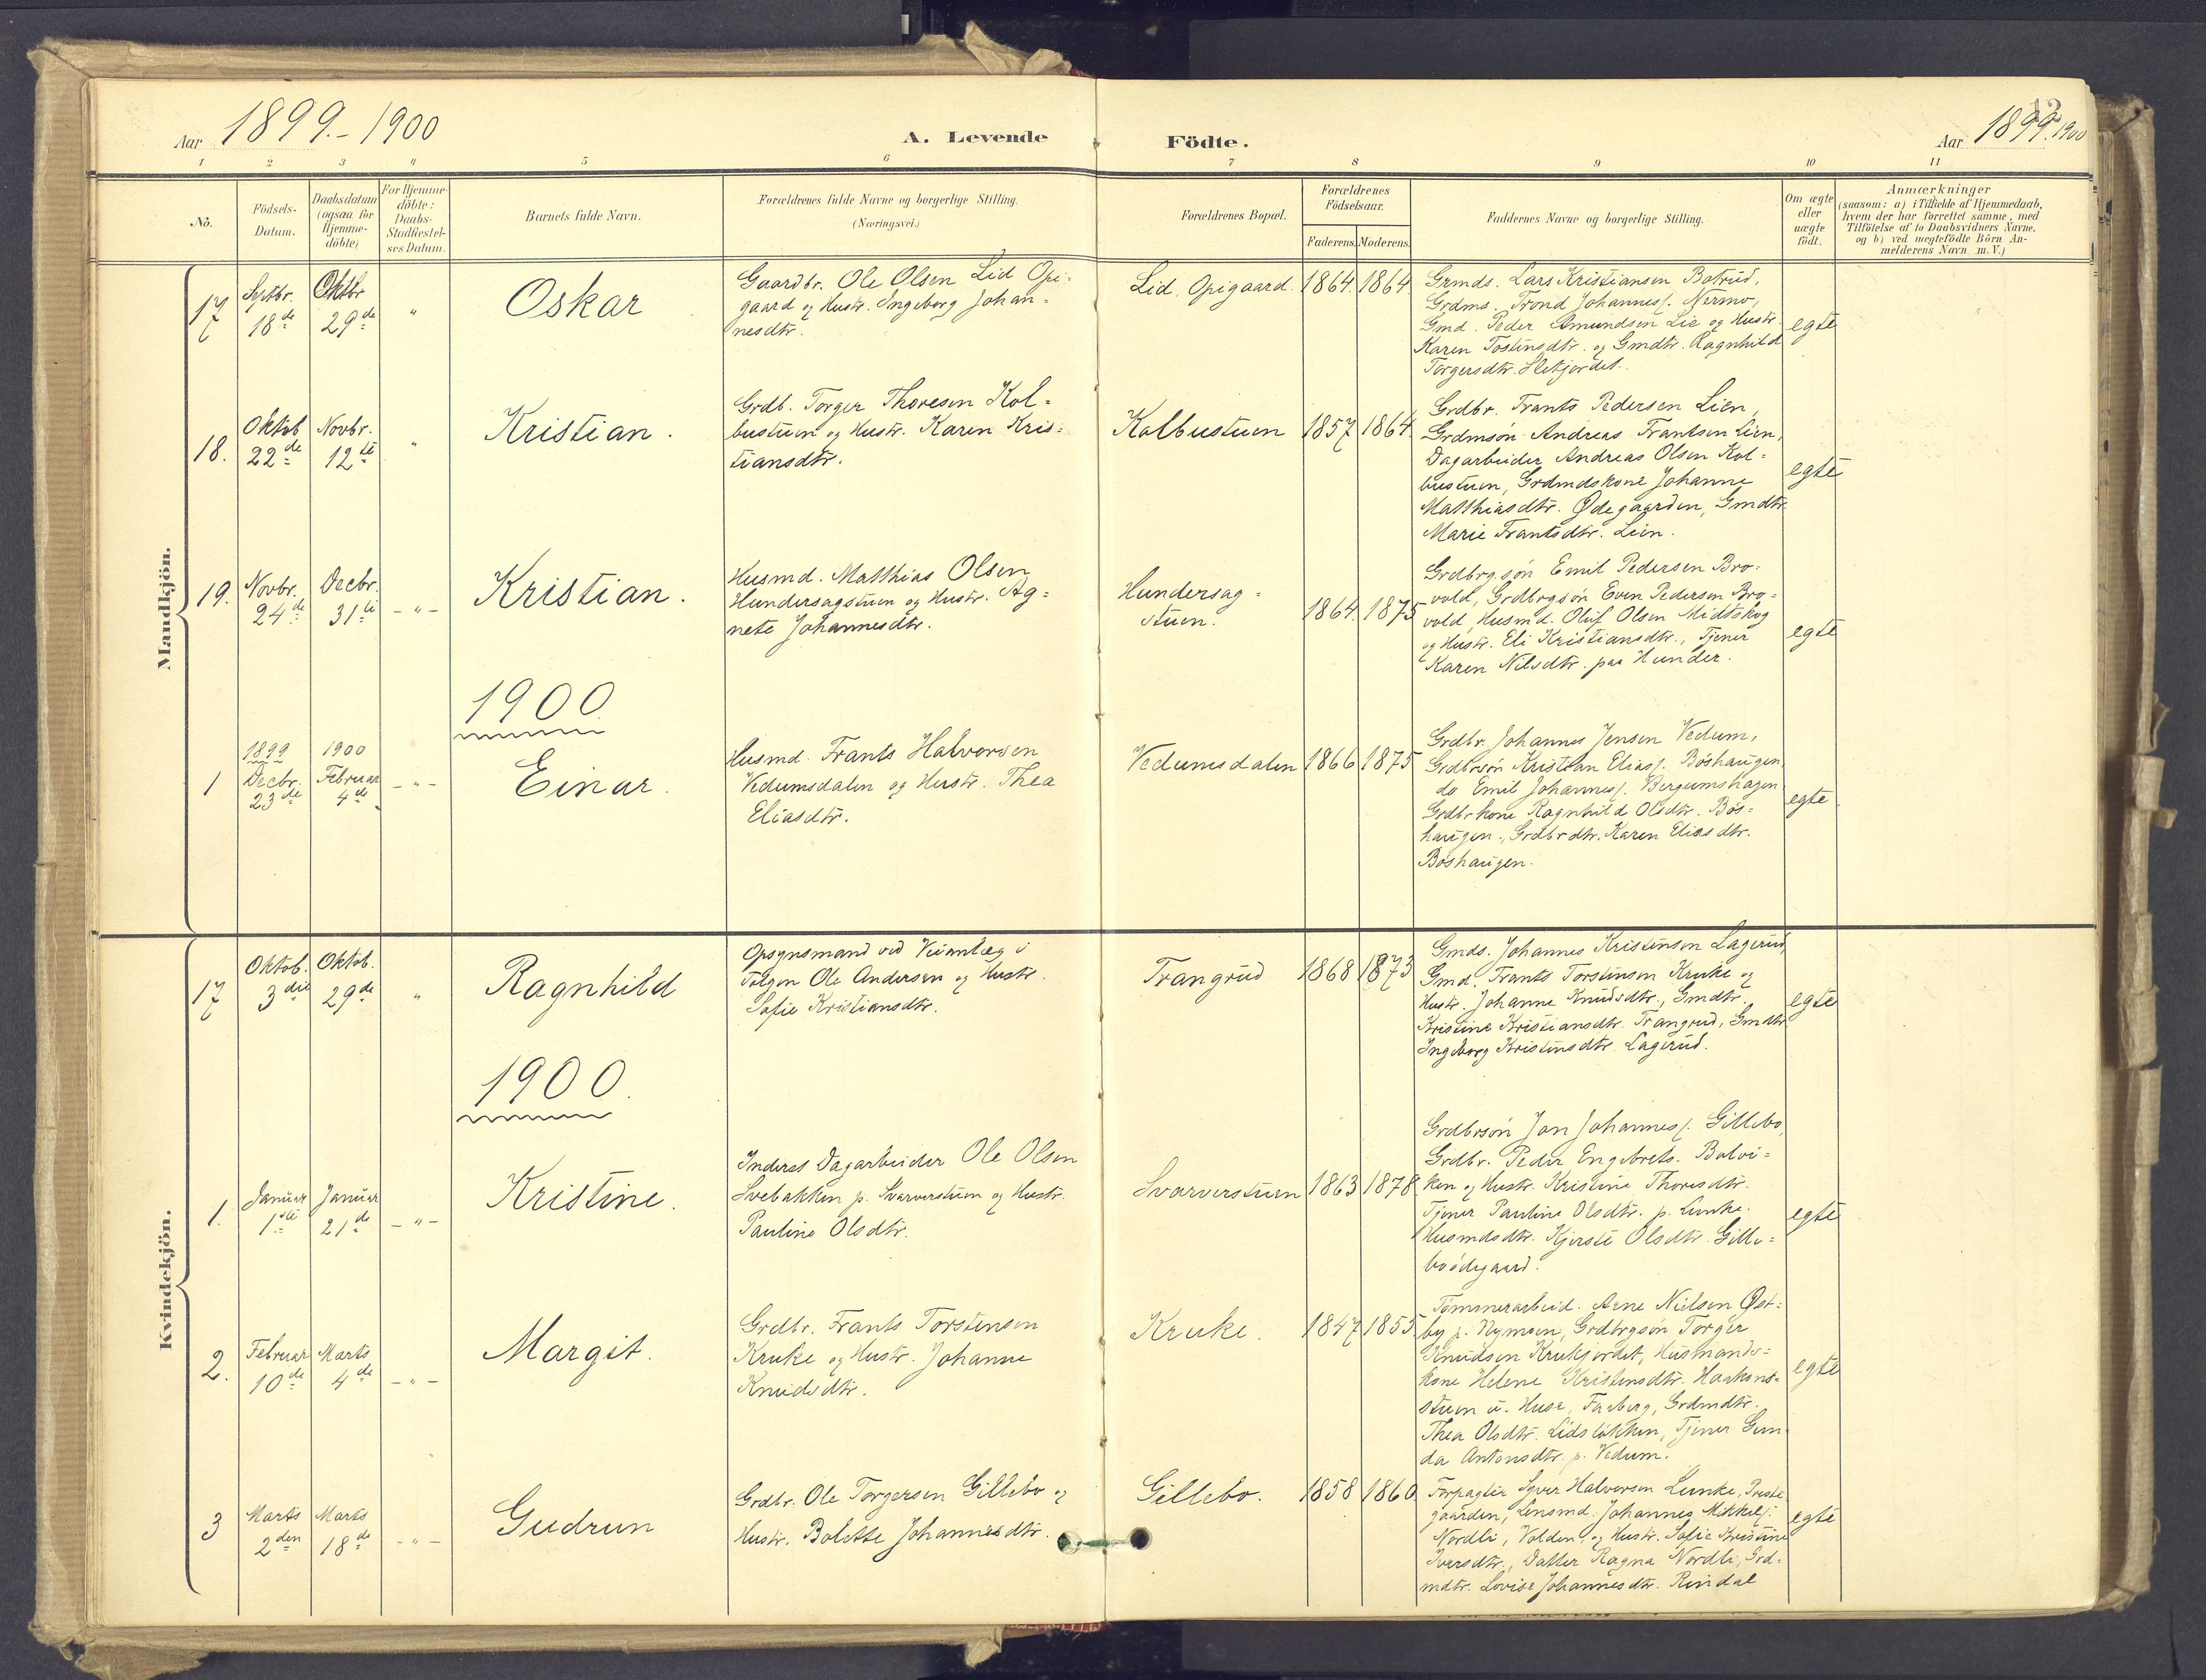 12
Aar 1899.-1900
A. Levende
Födte.
Aar 1899. 1900
1 2 3 4 5 6 7 8 9 10 11
No.
Födsels-
Datum.
Daabsdatum
(ogsaa for
Hjemme-
döbte)
For Hjemme-
döbte:
Daabs-
Stadfæstel-
ses Datum.
Barnets fulde Navn.
Forældrenes fulde Navne og borgerlige Stilling.
(Næringsvei.)
Forældrenes Bopæl.
Forældrenes
Födselsaar.
Faderens. Moderens.
Faddernes Navne og borgerlige Stilling.
Om ægte
eller
uægte
födt.
Anmærkninger
(saasom: a) i Tilfælde af Hjemmedaab,
hvem der har forrettet samme, med
Tilföielse af to Daabsvidners Navne,
og b) ved uægtefödte Börn An-
melderens Navn m. V.)
Mandkjön.
17
Septbr.
18de
Oktbr
29de
"
Oskar
Gaardbr. Ole Olsen Lid Opi-
gaard og Hustr. Ingeborg Johan-
nesdtr.
Lid. Opigaard.
1864. 1864
Grmds. Lars Kristiansen Botrud,
Grdms. Trond Johannes/. Nermo,
Gmd. Peder Amundsen Lie og Hustr.
Karen Tostensdtr. og Gmdtr. Ragnhild
Torgersdtr. Sletjordet.
egte
18.
Oktob
22de
Novbr.
12te
"
Kristian.
Grdb. Torger Thoresen Kol-
bustuen og Hustr. Karen Kris-
tiansdtr.
Kolbustuen
1857 1864
Grdbr. Frants Pedersen Lien,
Grdmsön Andreas Frantsen Lien,
Dagarbeider Andreas Olsen Kol-
bustuen, Grdmdskone Johanne
Matthiasdtr. Ødegaarden, Gmdtr.
Marie Frantsdtr. Lien.
egte
19.
Novbr.
24de
Decbr.
31te
- " -
Kristian.
Husmd. Matthias Olsen
Hundersagstuen og Hustr. Ag-
nete Johannesdtr.
Hundersag-
stuen.
1864. 1875
Grdbrg.sön Emil Pedersen Bro-
vold, Grdbrgsön Even Pedersen Bro-
vold, Husmd. Oluf Olsen Midtskog
og Hustr. Eli Kristiansdtr., Tjener
Karen Nilsdtr. paa Hunder.
egte
1900
1
1899
Decbr.
23de
1900
Februar
4de
- " -
Einar.
Husmd. Frants Halvorsen
Vedumsdalen og Hustr. Thea
Eliasdtr.
Vedumsdalen
1866 1875
Grdbr. Johannes Jensen Vedum,
Grdbrsön Kristian Elias/. Böshaugen,
do Emil Johannes/. Bergumshagen
Grdbrkone Ragnhild Olsdtr. Bös-
haugen, Grdbrdtr. Karen Eliasdtr.
Böshaugen.
egte.
Kvindekjön.
17
Oktob.
3die
Oktob.
29de
"
Ragnhild
Opsynsmand ved Veianlæg i
Tolgen Ole Andersen og Hustr.
Sofie Kristiansdtr.
Trangrud
1868 1873
Gmds. Johannes Kristensen Lagerud,
Gmd. Frants Torstensen Kruke og
Hustr. Johanne Knudsdtr., Gmdtr.
Kristine Kristiansdtr. Trangrud, Gmdtr
Ingeborg Kristensdtr. Lagerud.
egte
1900.
1.
Januar
1ste
Januar
21de
- " -
Kristine.
Inderst Dagarbeider Ole Olsen
Svebakken p. Svarverstuen og Hustr.
Pauline Olsdtr.
Svarverstuen
1863 1878
Grdbrsön Jon Johannes/. Gillebo,
Grdbr. Peder Engebrets. Bolvi-
ken og Hustr. Kristine Thoresdtr.
Tjener Pauline Olsdtr. p. Lunke.
Husmdsdtr. Kjersti Olsdtr. Gille-
boödegaard.
egte
2.
Februar
10de
Marts
4de
- " -
Margit.
Grdbr. Frants Torstensen
Kruke og Hustr. Johanne
Knudsdtr.
Kruke.
1847 1855
Tömmerarbeid. Arne Nielsen Øst-
by p. Nymoen, Grdbrgsön Torger
Knudsen Krukjordet, Husmands-
kone Helene Kristensdtr. Haakons-
stuen u. Huse, Faaberg, Grdmdtr.
Thea Olsdtr. Lidslökken, Tjener Gun-
da Antonsdtr. p. Vedum.
egte
3
Marts
2den
Marts
18de
- " -
Gudrun
Grdbr. Ole Torgersen Gillebo og
Hustr. Bolette Johannesdtr.
Gillebo.
1858 1860
Forpagter Syver Halvorsen Lunke, Preste-
gaarden, Lensmd. Johannes Mikkels/.
Nordli, Volden, og Hustr. Sofie Kristine
Iversdtr., Datter Ragna Nordli, Grd-
mdtr. Lovise Johannesdtr. Rindal
egte